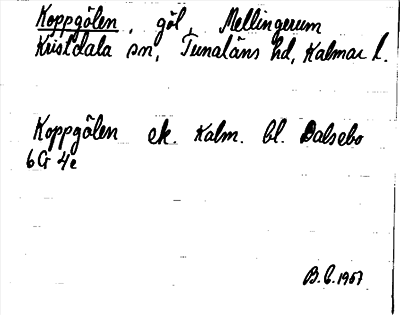 Koppgölen, göl, Mellingerum
Kristdala sn, Tunaläns hd, Kalmar l.
Koppgölen ek. Kalm. bl. Balsebo
6G 4e
B.C. 1967